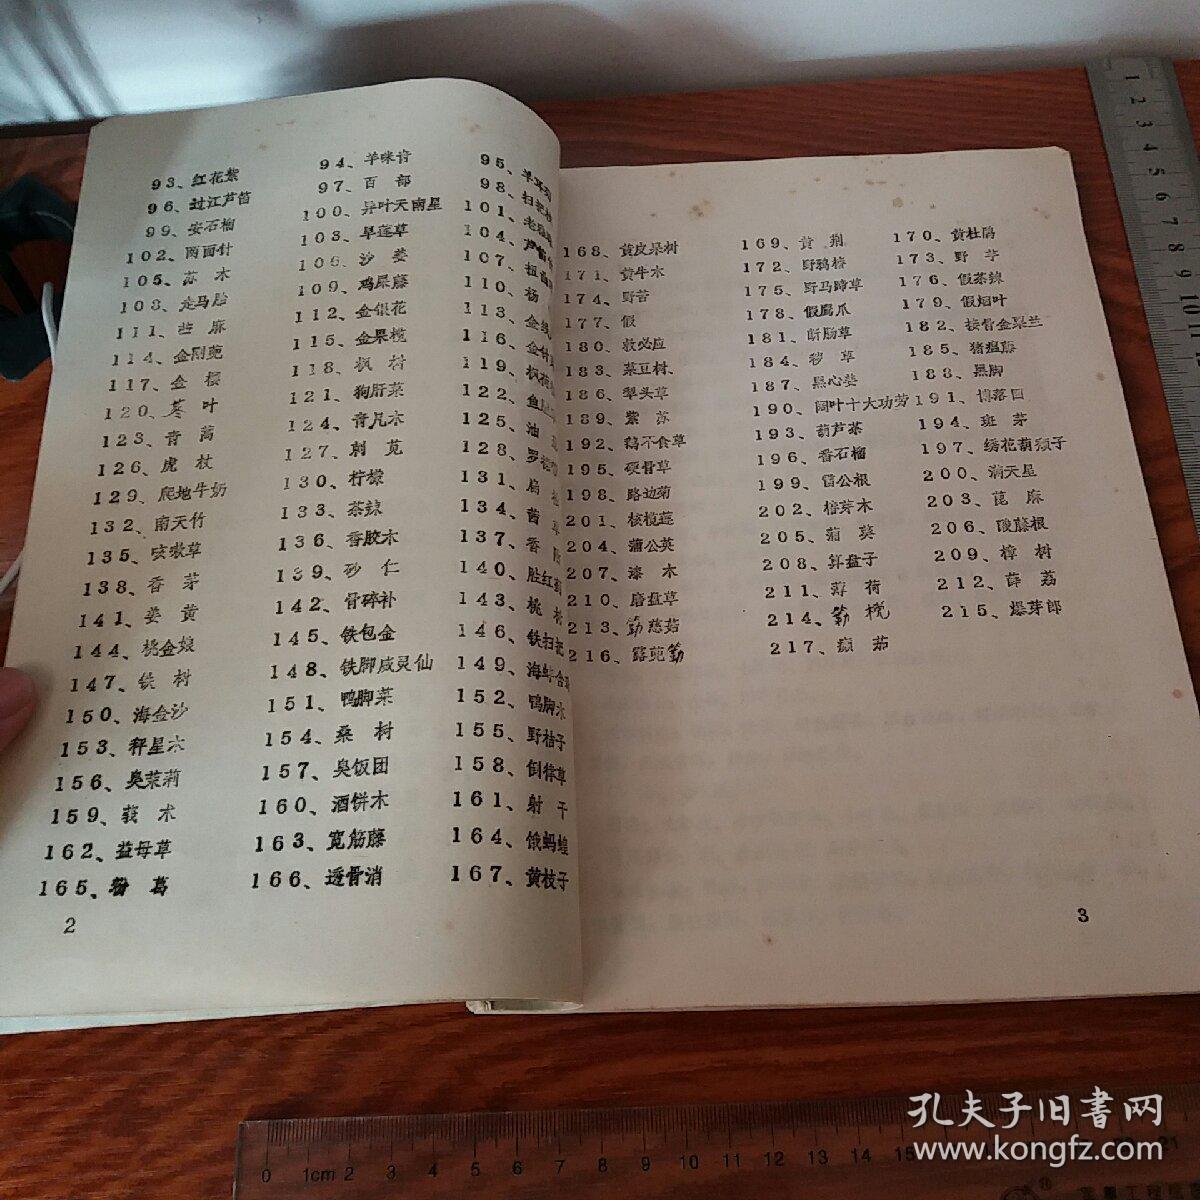 93、红花紫 94、羊咪青 95、羊耳
96、过江芦笛 97、百部 98、扫把
99、安石榴 100、异叶天南星 101、老
102、两面针 103、旱莲草 104、芦
105、苏木 106、沙姜 107、扭曲
108、走马胎 109、鸡屎藤 110、杨
111、苎麻 112、金银花 113、金线
114、金刚蔸 115、金果榄 116、金针
117、金樱 118、枫树 119、枫荷
120、茶叶 121、狗肝菜 122、鱼
123、青蒿 124、青凡木 125、油
126、虎杖 127、刺苋 128、罗
129、爬地牛奶 130、柠檬 131、扁
132、南天竹 133、茶辣 134、茜草
135、咳嗽草 136、香胶木 137、香附
138、香茅 139、砂仁 140、胜红蓟
141、姜黄 142、骨碎补 143、桃树
144、桃金娘 145、铁包金 146、铁扫把
147、铁树 148、铁脚威灵仙 149、海蚌含珠
150、海金沙 151、鸭脚菜 152、鸭脚木
153、秤星木 154、桑树 155、野桔子
156、臭茉莉 157、臭饭团 158、倒徛草
159、莪术 160、酒饼木 161、射干
162、益母草 163、宽筋藤 164、饿蚂蝗
165、粉葛 166、透骨消 167、黄枝子
2
168、黄皮果树 169、黄荆 170、黄杜鹃
171、黄牛木 172、野鸦椿 173、野芋
174、野苔 175、野马蹄草 176、假茶辣
177、假 178、假鹰爪 179、假烟叶
180、救必应 181、断肠草 182、接骨金粟兰
183、菜豆树 184、秽草 185、猪瘟藤
186、犁头草 187、黑心姜 188、黑脚
189、紫苏 190、阔叶十大功劳 191、博落回
192、鹅不食草 193、葫芦茶 194、斑茅
195、硬骨草 196、番石榴 197、绣花葫须子
198、路边菊 199、雷公根 200、满天星
201、核榄莲 202、椿芽木 203、蓖麻
204、蒲公英 205、蒲葵 206、酸藤根
207、漆木 208、算盘子 209、樟树
210、磨盘草 211、薄荷 212、薜荔
213、簕慈菇 214、簕 215、爆芽郎
216、露蔸簕 217、癫茄
3
孔夫子旧書网
www.kongfz.com
1 2 3 4 5
0 1cm 2 3 4 5 6 7 8 9 10 11 12 13 14 15 21